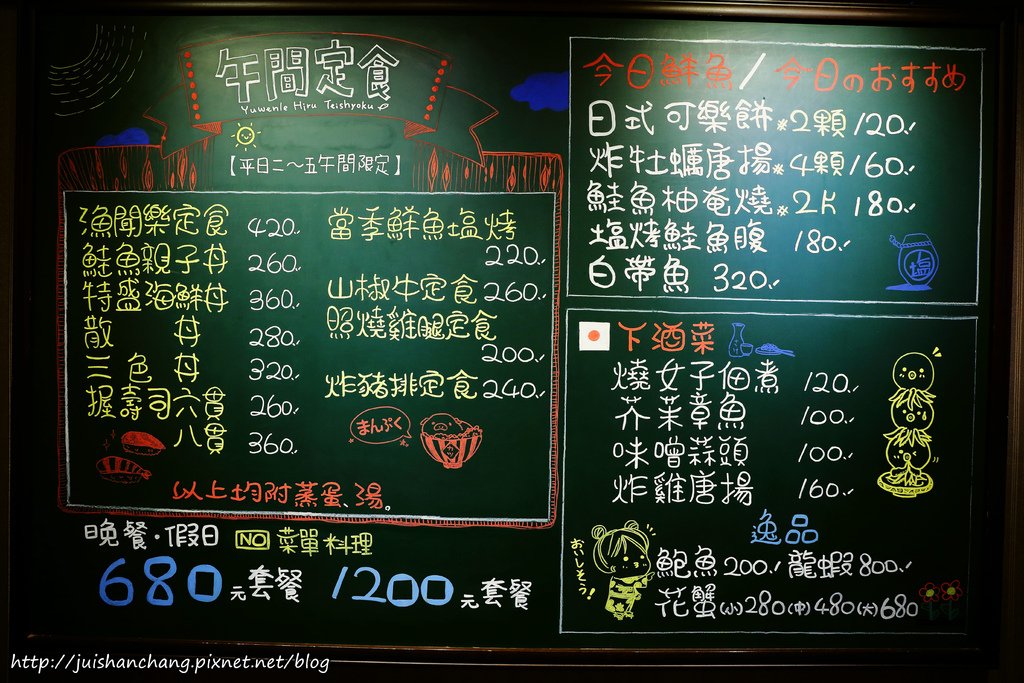 午間定食
Yuwenle Hiru Teishyoku
【平日二～五午間限定】
漁聞樂定食 420.
鮭魚親子丼 260.
特盛海鮮丼 360.
散 丼 280.
三色 丼 320.
握壽司六貫 260.
八貫 360.
當季鮮魚塩烤
220.
山椒牛定食 260.
照燒雞腿定食
200.
炸豬排定食 240.
まんぷく
以上均附蒸蛋、湯。
晚餐·假日 NO 菜單料理
680元套餐 1200元套餐
今日鮮魚/今日のおすすめ
日式可樂餅※2顆/120.
炸牡蠣唐揚※4顆/160.
鮭魚柚庵燒※2片 180.
塩烤鮭魚腹 180.
白帶魚 320.
塩
下酒菜
燒女子佃煮 120.
芥茉章魚 100.
味噌蒜頭 100.
炸雞唐揚 160.
逸品
おいしそう!
鮑魚200. 龍蝦800.
花蟹(小)280(中)480(大)680
http://juishanchang.pixnet.net/blog